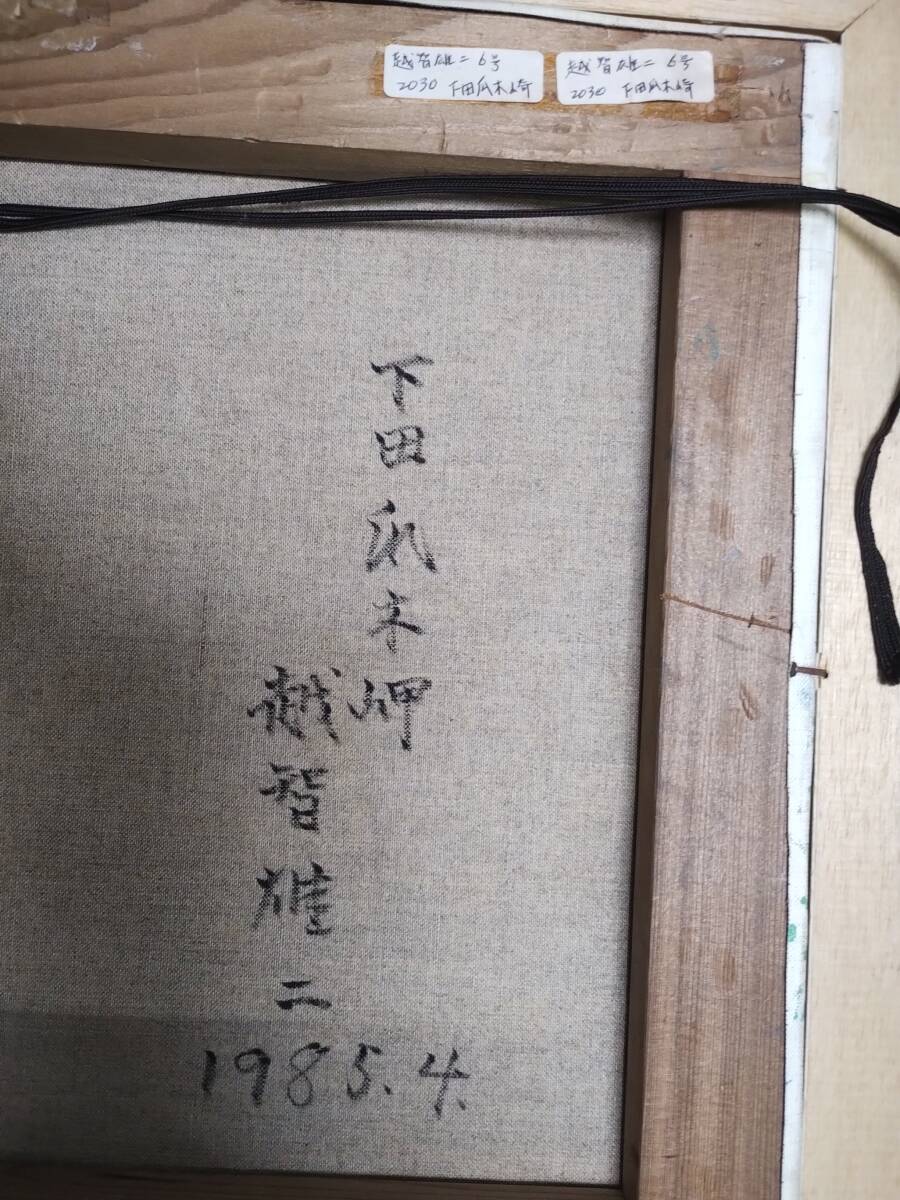 越智雄二 6号
2030 下田爪木崎
越智雄二 6号
2030 下田爪木崎
下田爪木岬
越智雄二
1985.4.